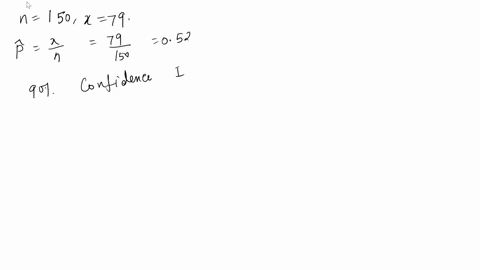 n = 150, x = 79.
p̂ = x/n = 79/150 = 0.52
90%. Confidence I